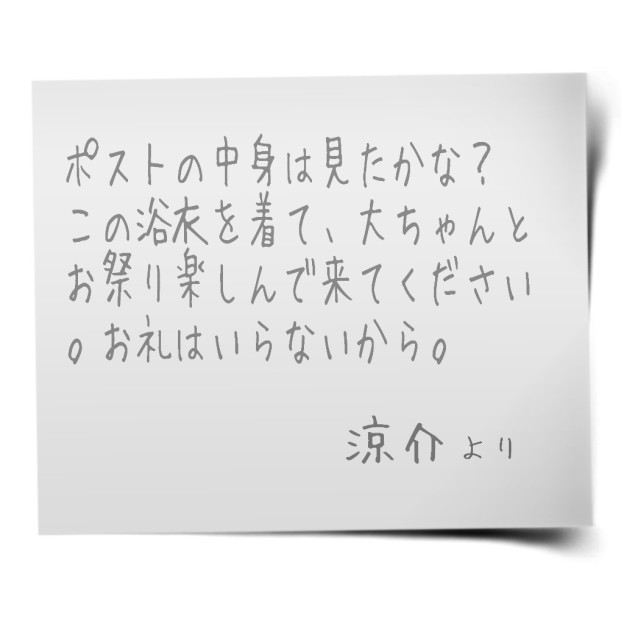 ポストの中身は見たかな？
この浴衣を着て、大ちゃんと
お祭り楽しんで来てください
。お礼はいらないから。
涼介より